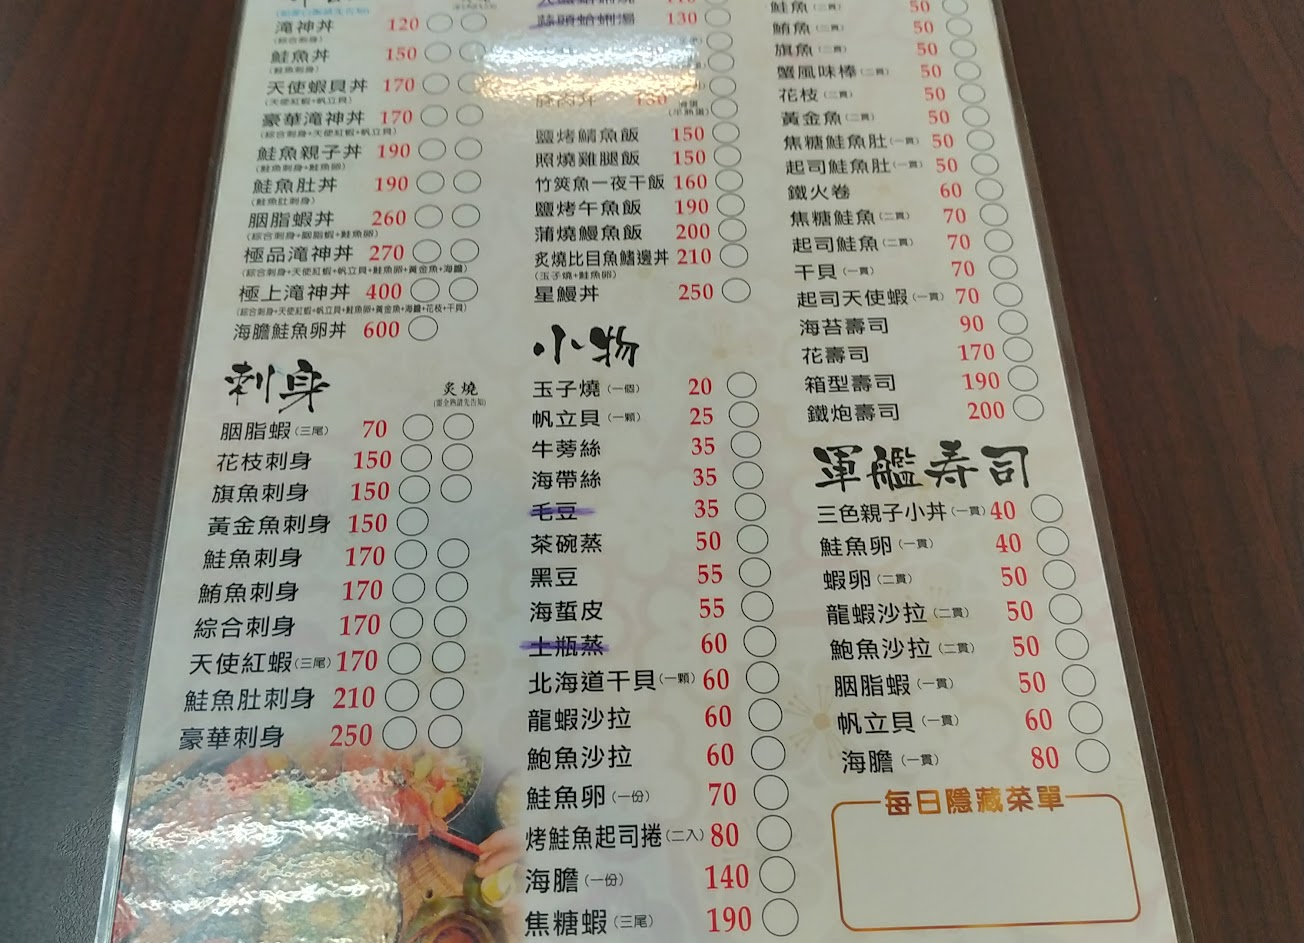 滝神丼 120
(綜合刺身)
鮭魚丼 150
(鮭魚刺身)
天使蝦貝丼 170
(天使紅蝦+帆立貝)
豪華滝神丼 170
(綜合刺身+天使紅蝦+帆立貝)
鮭魚親子丼 190
(鮭魚刺身+鮭魚卵)
鮭魚肚丼 190
(鮭魚肚刺身)
胭脂蝦丼 260
(綜合刺身+胭脂蝦+鮭魚卵)
極品滝神丼 270
(綜合刺身+天使紅蝦+帆立貝+鮭魚卵+黃金魚+海膽)
極上滝神丼 400
(綜合刺身+天使紅蝦+帆立貝+鮭魚卵+黃金魚+海膽+花枝+干貝)
海膽鮭魚卵丼 600
刺身
炙燒
(需全熟請先告知)
胭脂蝦(三尾) 70
花枝刺身 150
旗魚刺身 150
黃金魚刺身 150
鮭魚刺身 170
鮪魚刺身 170
綜合刺身 170
天使紅蝦(三尾) 170
鮭魚肚刺身 210
豪華刺身 250
蒜頭蛤蜊湯 130
鹽烤鯖魚飯 150
照燒雞腿飯 150
竹筴魚一夜干飯 160
鹽烤午魚飯 190
蒲燒鰻魚飯 200
炙燒比目魚鰭邊丼 210
(玉子燒+鮭魚卵)
星鰻丼 250
小物
玉子燒(一個) 20
帆立貝(一顆) 25
牛蒡絲 35
海帶絲 35
毛豆 35
茶碗蒸 50
黑豆 55
海蜇皮 55
土瓶蒸 60
北海道干貝(一顆) 60
龍蝦沙拉 60
鮑魚沙拉 60
鮭魚卵(一份) 70
烤鮭魚起司捲(二入) 80
海膽(一份) 140
焦糖蝦(三尾) 190
鮭魚(二貫) 50
鮪魚(二貫) 50
旗魚(二貫) 50
蟹風味棒(二貫) 50
花枝(二貫) 50
黃金魚(二貫) 50
焦糖鮭魚肚(一貫) 50
起司鮭魚肚(一貫) 50
鐵火卷 60
焦糖鮭魚(二貫) 70
起司鮭魚(二貫) 70
干貝(一貫) 70
起司天使蝦(一貫) 70
海苔壽司 90
花壽司 170
箱型壽司 190
鐵炮壽司 200
軍艦寿司
三色親子小丼(一貫) 40
鮭魚卵(一貫) 40
蝦卵(二貫) 50
龍蝦沙拉(二貫) 50
鮑魚沙拉(二貫) 50
胭脂蝦(一貫) 50
帆立貝(一貫) 60
海膽(一貫) 80
每日隱藏菜單